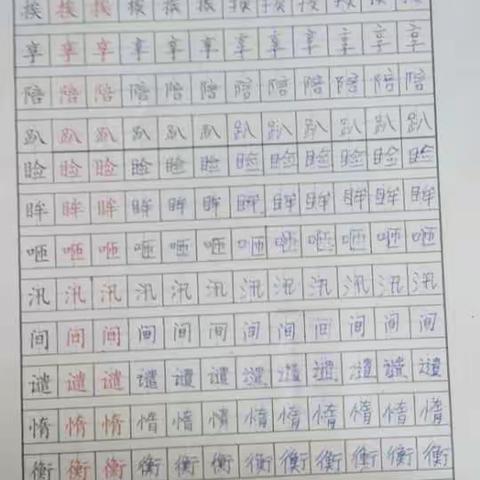 挨挨挨挨挨挨挨挨挨挨挨挨
享享享享享享享享享享享享
陪陪陪陪陪陪陪陪陪陪陪陪
趴趴趴趴趴趴趴趴趴趴趴趴
睑睑睑睑睑睑睑睑睑睑睑睑
眸眸眸眸眸眸眸眸眸眸眸眸
汛汛汛汛汛汛汛汛汛汛汛汛
间间间间间间间间间间间间
谴谴谴谴谴谴谴谴谴谴谴谴
惰惰惰惰惰惰惰惰惰惰惰惰
衡衡衡衡衡衡衡衡衡衡衡衡